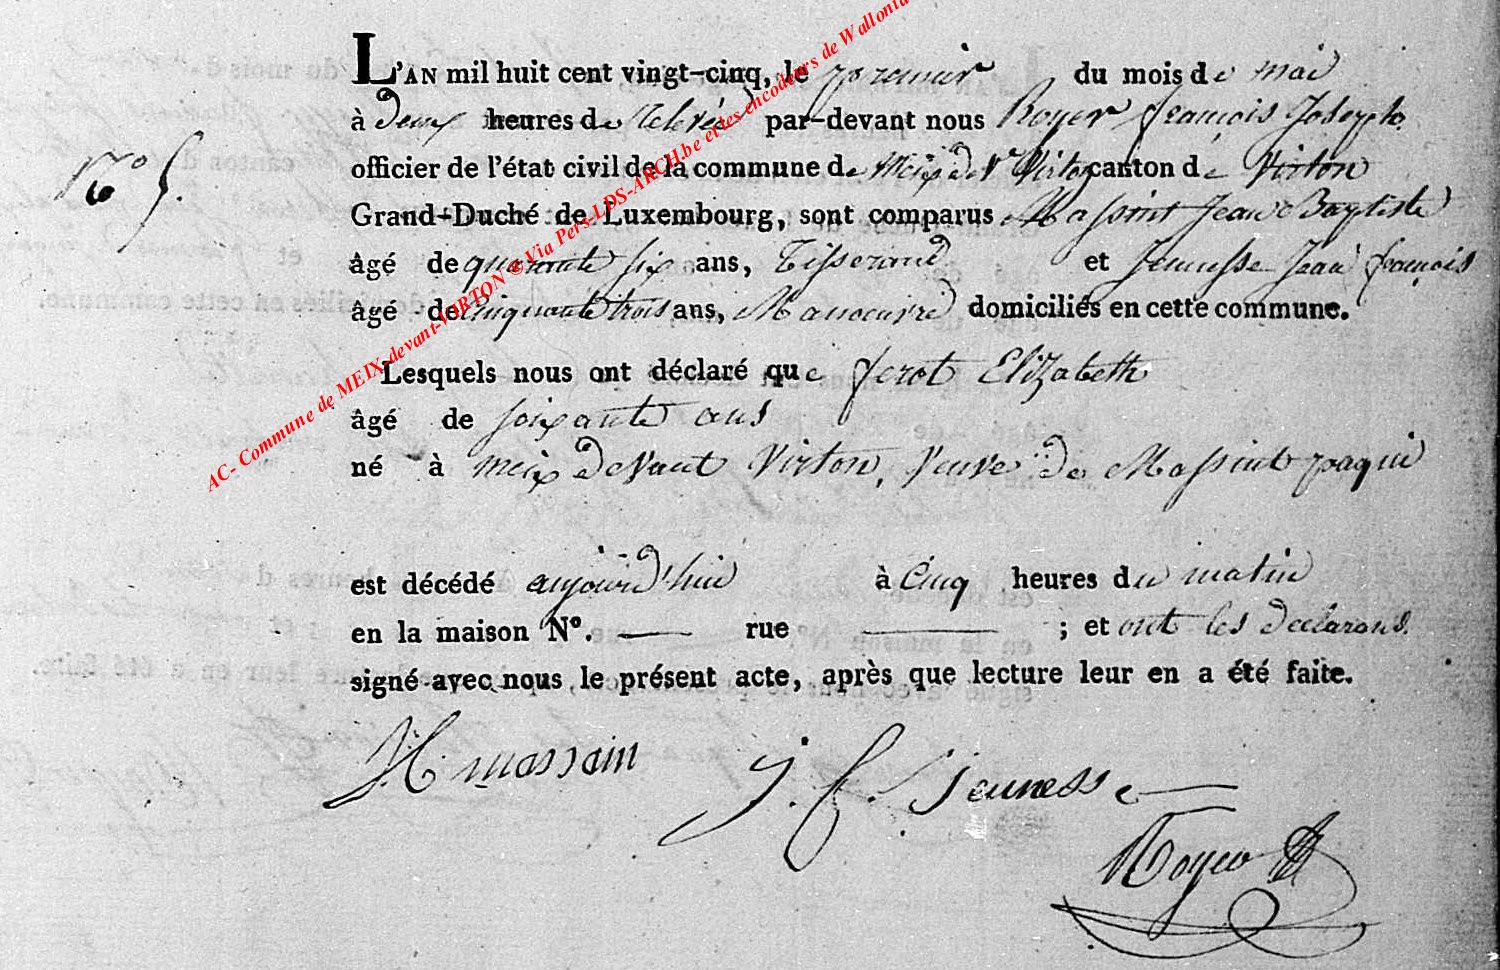 L'AN mil huit cent vingt-cinq, le premier du mois de mai
à deux heures de relevée par-devant nous Royer françois Joseph
N° 5.
officier de l'état civil de la commune de Meix dt Virton canton de Virton
Grand-Duché de Luxembourg, sont comparus Massint Jean Baptiste
âgé de quarante six ans, Tisserand et Jeunesse Jean françois
âgé de cinquante trois ans, Manoeuvre domiciliés en cette commune.
Lesquels nous ont déclaré que ferot Elizabeth
âgé de soixante ans
né à meix devant Virton, Veuve de Massint paquin
est décédé aujourd'hui à Cinq heures du matin
en la maison N°. — rue — ; et ont les declarans.
signé avec nous le présent acte, après que lecture leur en a été faite.
massain
J. f. Jeunesse
Royer
AC- Commune de MEIX-devant-VIRTON © Via Pers-LDS-ARCH.be et les encodeurs de Wallonia